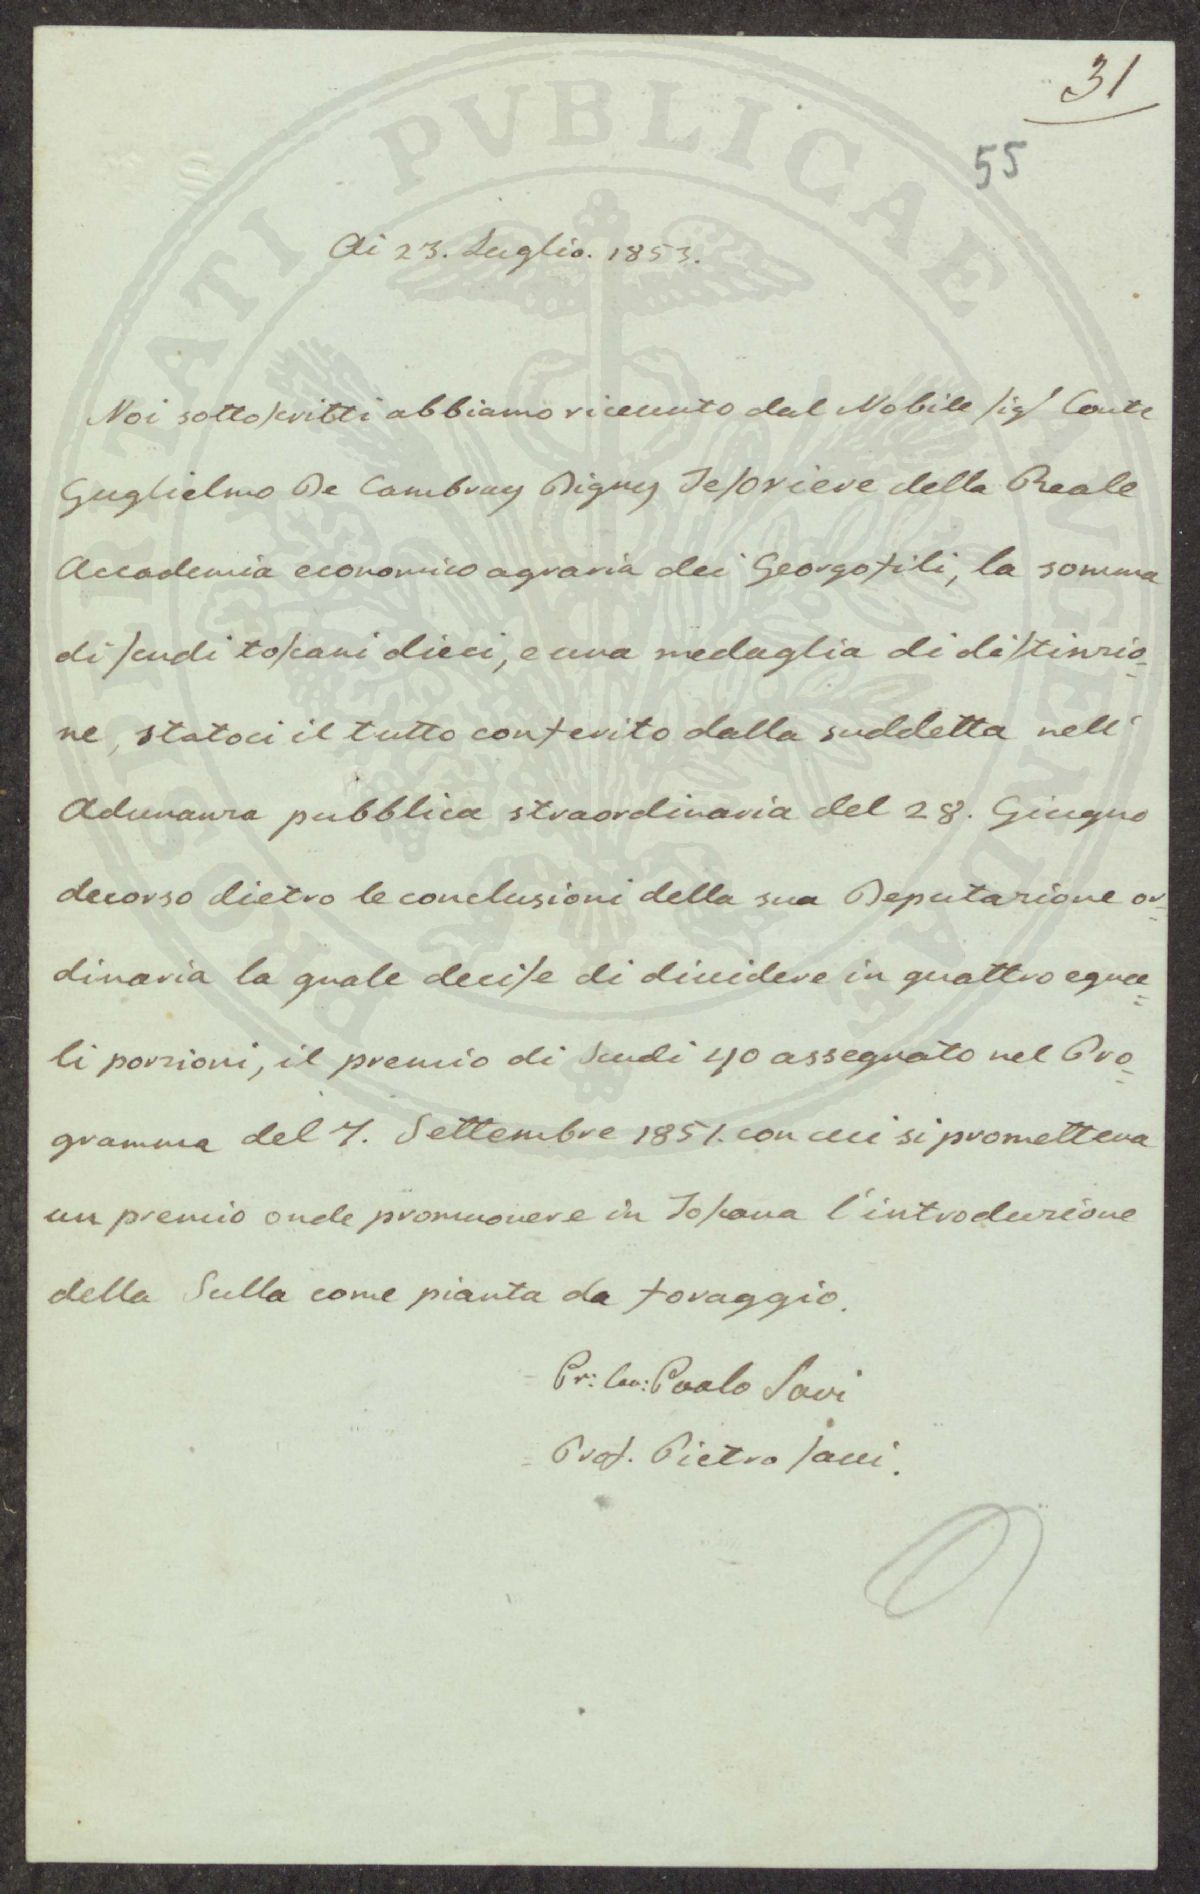 31
55
Ai 23. Luglio. 1853.
Noi sottoscritti abbiamo ricevuto dal Nobile Sig.r Conte
Guglielmo De Cambray Digny Tesoriere della Reale
Accademia economico agraria dei Georgofili, la somma
di scudi toscani dieci, e una medaglia di distinzio=
ne, statoci il tutto conferito dalla suddetta nell'
Adunanza pubblica straordinaria del 28. Giugno
decorso dietro le conclusioni della sua Deputazione or=
dinaria la quale decise di dividere in quattro egua=
li porzioni, il premio di Scudi 40 assegnato nel Pro=
gramma del 7. Settembre 1851. con cui si prometteva
un premio onde promuovere in Toscana l'introduzione
della Sulla come pianta da foraggio.
Pr: Cav: Paolo Savi
Prof. Pietro Savi.
PROSPERITATI PVBLICAE AVGENDAE